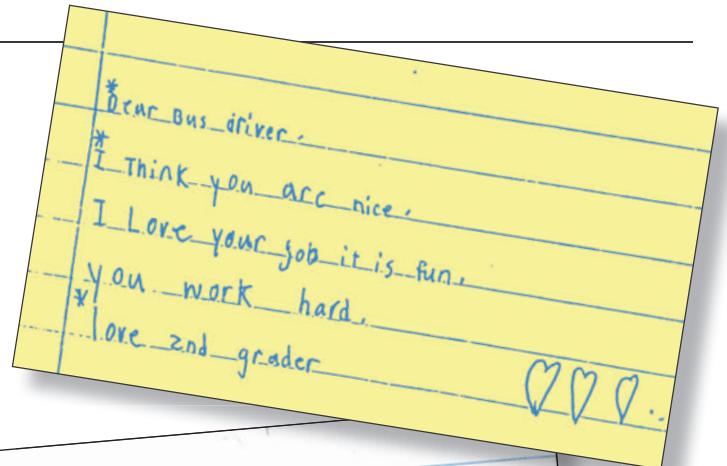 *Dear Bus driver.
*I Think you are nice.
I Love your job it is fun.
you work hard.
*love 2nd grader